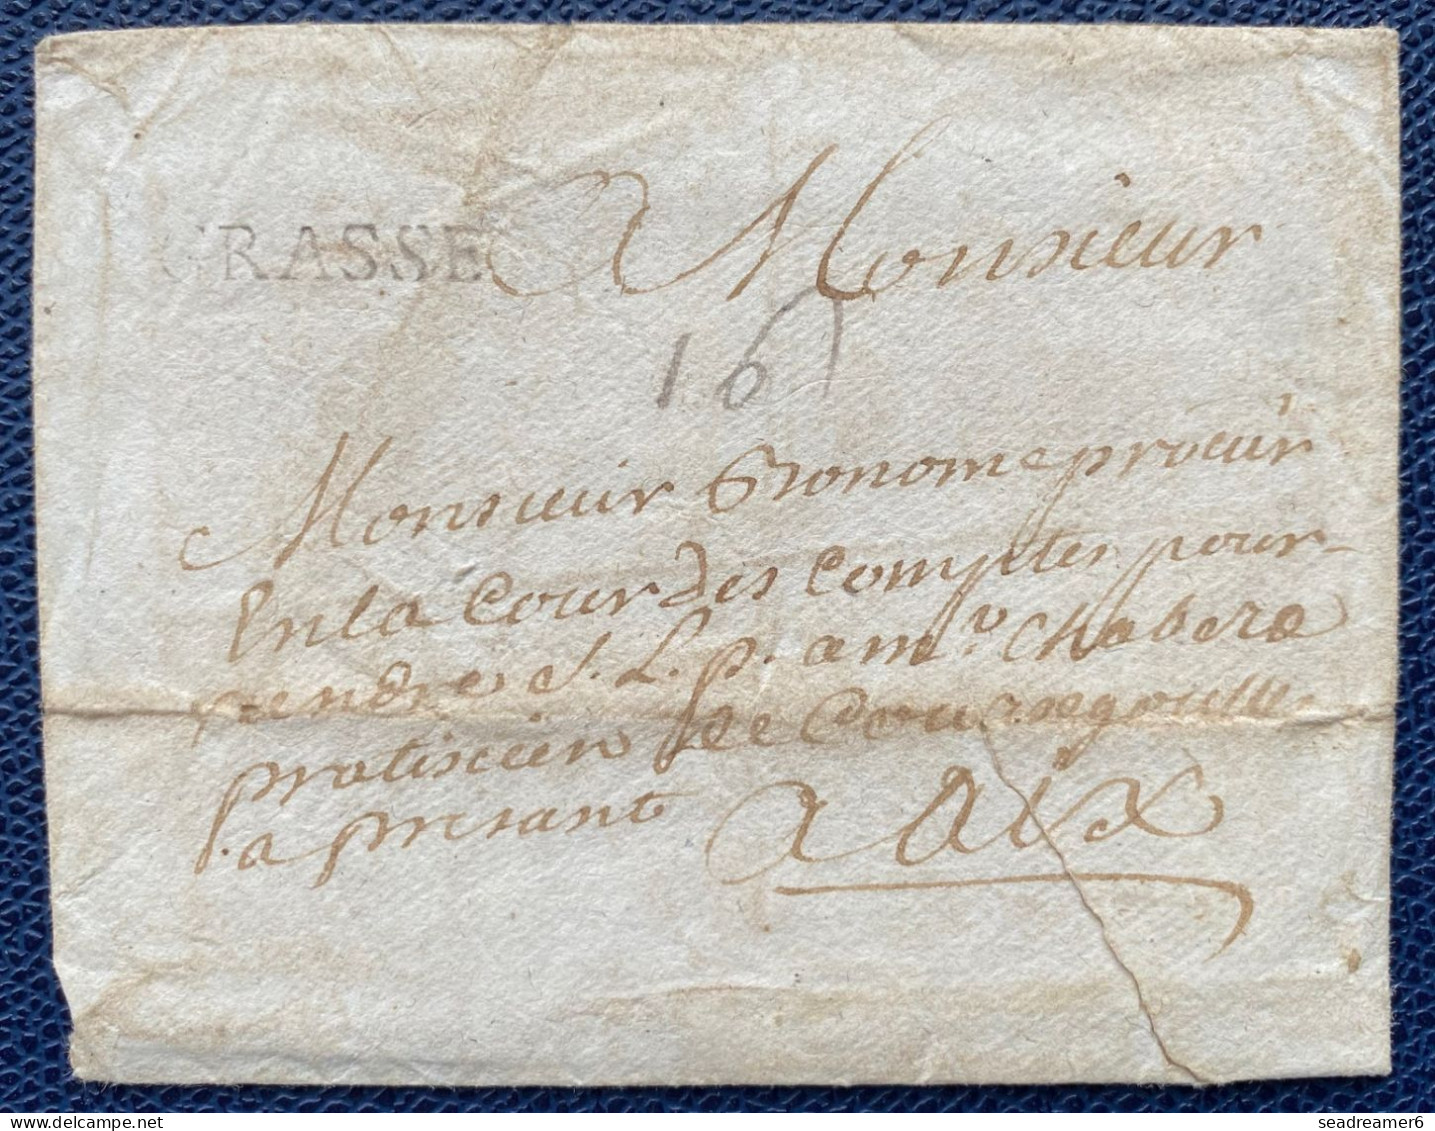 GRASSE A Monsieur
16
Monsieur Gronome procur
En la Cour des Comptes pour
rendre s. L. p. a mr. Chabere
pratisien de Coursegoulles
a present A Aix
seadreamer6